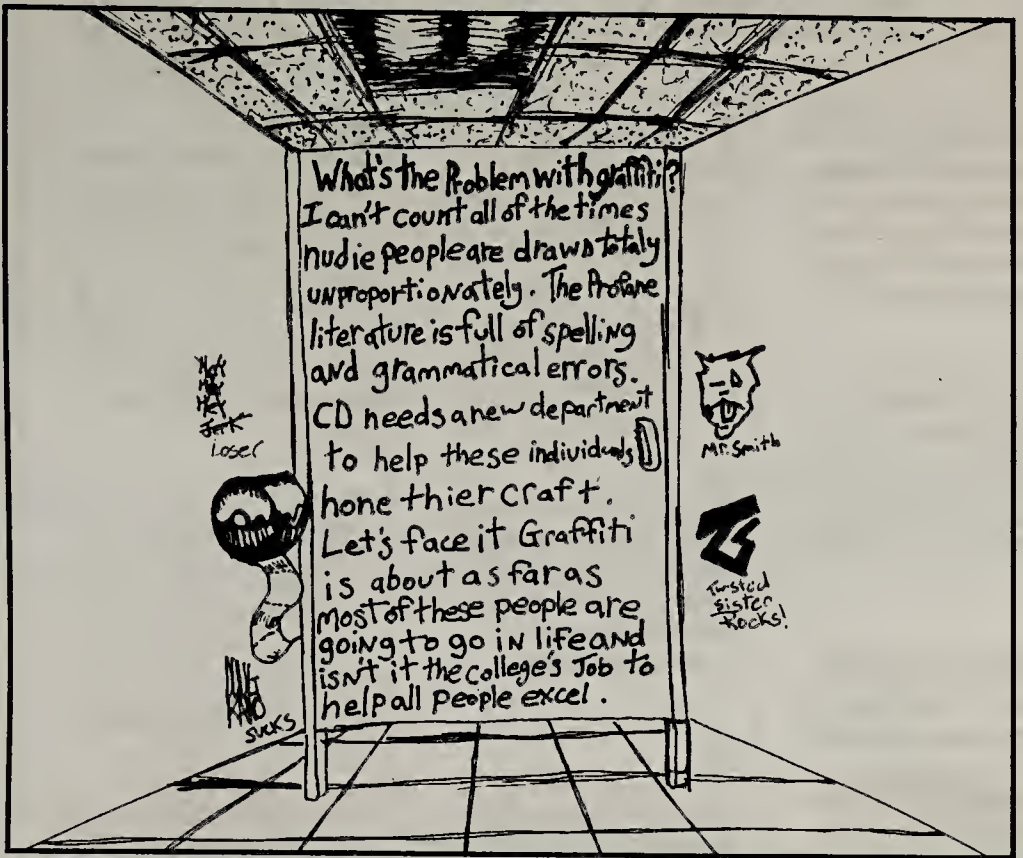 What's the Problem with graffiti?
I can't count all of the times
nudie people are drawn totaly
unproportionately. The Profane
literature is full of spelling
and grammatical errors.
CD needs a new department
to help these individuals
hone thier craft.
Let's face it Graffiti
is about as far as
most of these people are
going to go in life and
isn't it the college's Job to
help all People excel.
Jerk
Loser
sucks
Mr. Smith
TS
Twisted
sister
Rocks!